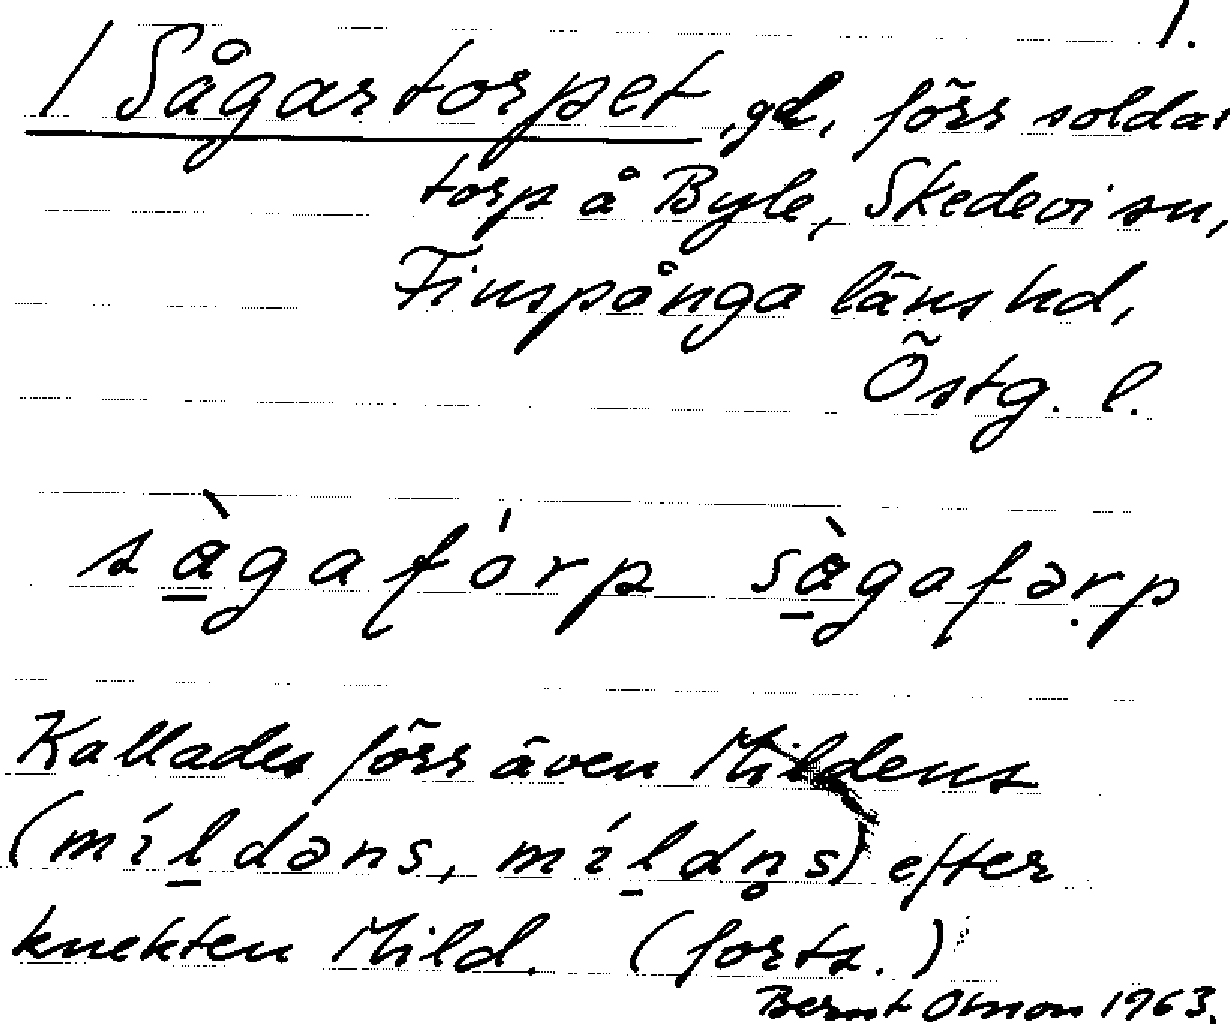 1.
/ Sågartorpet, gd, förr soldat
torp å Byle, Skedevi sn,
Finspånga läns hd,
Östg. l.
sàgafórp sàgafərp
Kallades förr även Mildens
(míldəns, míldn̥s) efter
knekten Mild. (forts.)
Bernt Olsson 1963.